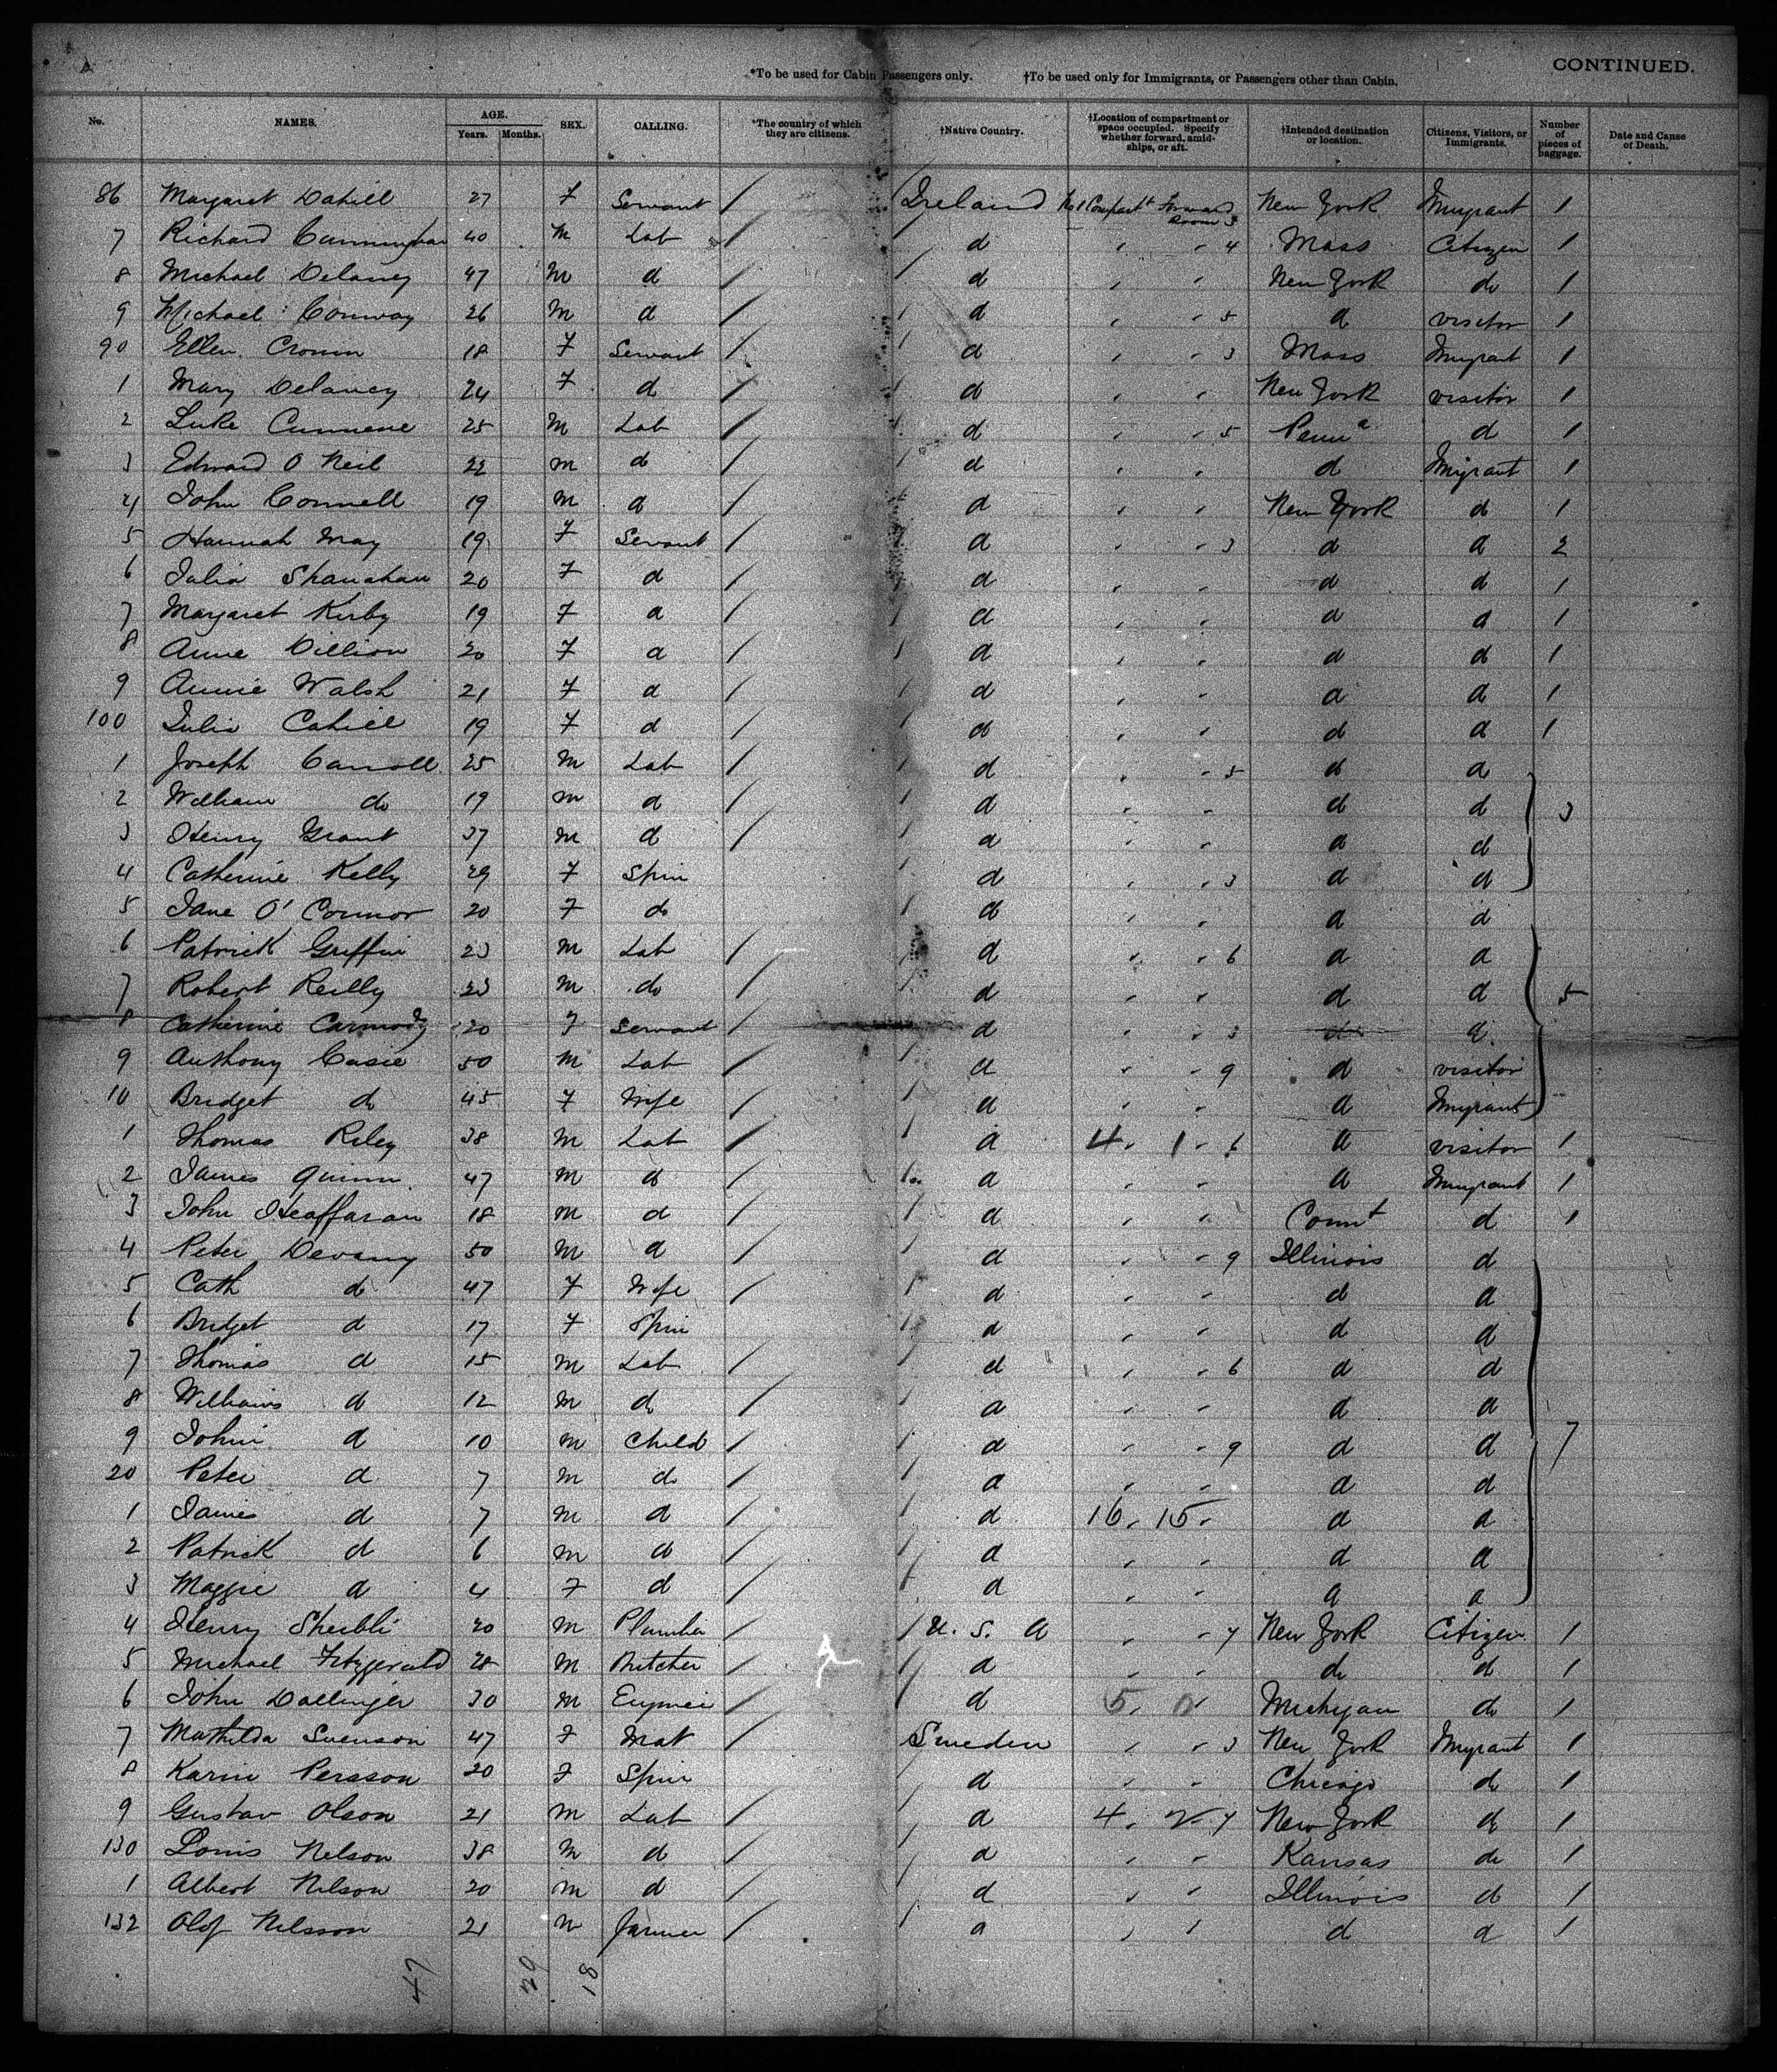 CONTINUED.
*To be used for Cabin Passengers only. †To be used only for Immigrants, or Passengers other than Cabin.
No. NAMES. AGE. Years. Months. SEX. CALLING. *The country of which they are citizens. †Native Country. †Location of compartment or space occupied. Specify whether forward, amidships, or aft. †Intended destination or location. Citizens, Visitors, or Immigrants. Number of pieces of baggage. Date and Cause of Death.
86 Margaret Cahill 27 F Servant / Ireland No 1 Compart t Forward Room 3 New York Imigrant 1
7 Richard Cunningham 40 M Lab / d , - 4 Mass Citizen 1
8 Michael Delaney 47 M d / d , - New York do 1
9 Michael Conway 26 M d / d , - 5 d visitor 1
90 Ellen Cronin 18 F Servant / d , - 3 Mass Imigrant 1
1 Mary Delaney 24 F d / d , - New York visitor 1
2 Luke Cunnene 25 M Lab / d , - 5 Penn a d 1
3 Edward O Neil 22 M d / d , - d Imigrant 1
4 John Connell 19 M d / d , - New York d 1
5 Hannah May 19 F Servant / d , - 3 d d 2
6 Julia Shanahan 20 F d / d , - d d 1
7 Margaret Kirby 19 F d / d , - d d 1
8 Anne Dillion 20 F d / d , - d d 1
9 Annie Walsh 21 F d / d , - d d 1
100 Julia Cahill 19 F d / d , - d d 1
1 Joseph Carroll 25 M Lab / d , - 5 d d
2 William do 19 M d / d , - d d 3
3 Henry Grant 37 M d / d , - d d
4 Catherine Kelly 29 F Spin d , - 3 d d
5 Jane O' Connor 20 F do d , - d d
6 Patrick Griffin 23 M Lab / d , - 6 d d
7 Robert Reilly 23 M do / d , - d d 5
8 Catherine Carmody 20 F Servant / d , - 3 d d
9 Anthony Casie 50 M Lab / d , - 9 d visitor
10 Bridget do 45 F Wife / d , - d Imigrant
1 Thomas Riley 38 M Lab / d 4 , 1 - 6 d visitor 1
2 James Quinn 47 M d / d , - d Imigrant 1
3 John Heaffaran 18 M d / d , - Conn t d 1
4 Peter Devany 50 M d / d , - 9 Illinois d
5 Cath do 47 F Wife / d , - d d
6 Bridget d 17 F Spin d , - d d
7 Thomas d 15 M Lab / d , - 6 d d
8 Williams d 12 M do / d , - d d
9 John d 10 M Child / d , - 9 d d 7
20 Peter d 7 M do / d , - d d
1 James d 7 M d / d 16 , 15 - d d
2 Patrick d 6 M d / d , - d d
3 Maggie d 4 F d / d , - d d
4 Henry Sheibli 20 M Plumber / U. S. A , - 7 New York Citizen 1
5 Michael Fitzgerald 28 M Butcher / d , - do d 1
6 John Dallinger 30 M / d 5 , 0 Michigan do 1
7 Mathilda Svenson 47 F Mat / Sweden , - 3 New York Imigrant 1
8 Karin Persson 20 F Spin d , - Chicago do 1
9 Gustav Olson 21 M Lab / d 4 , 2 - 7 New York do 1
130 Louis Nelson 38 M d / d , - Kansas do 1
1 Albert Nilson 20 M d / d , - Illinois d 1
132 Olof Nilsson 21 M Farmer / d , - d d 1
47 29 18